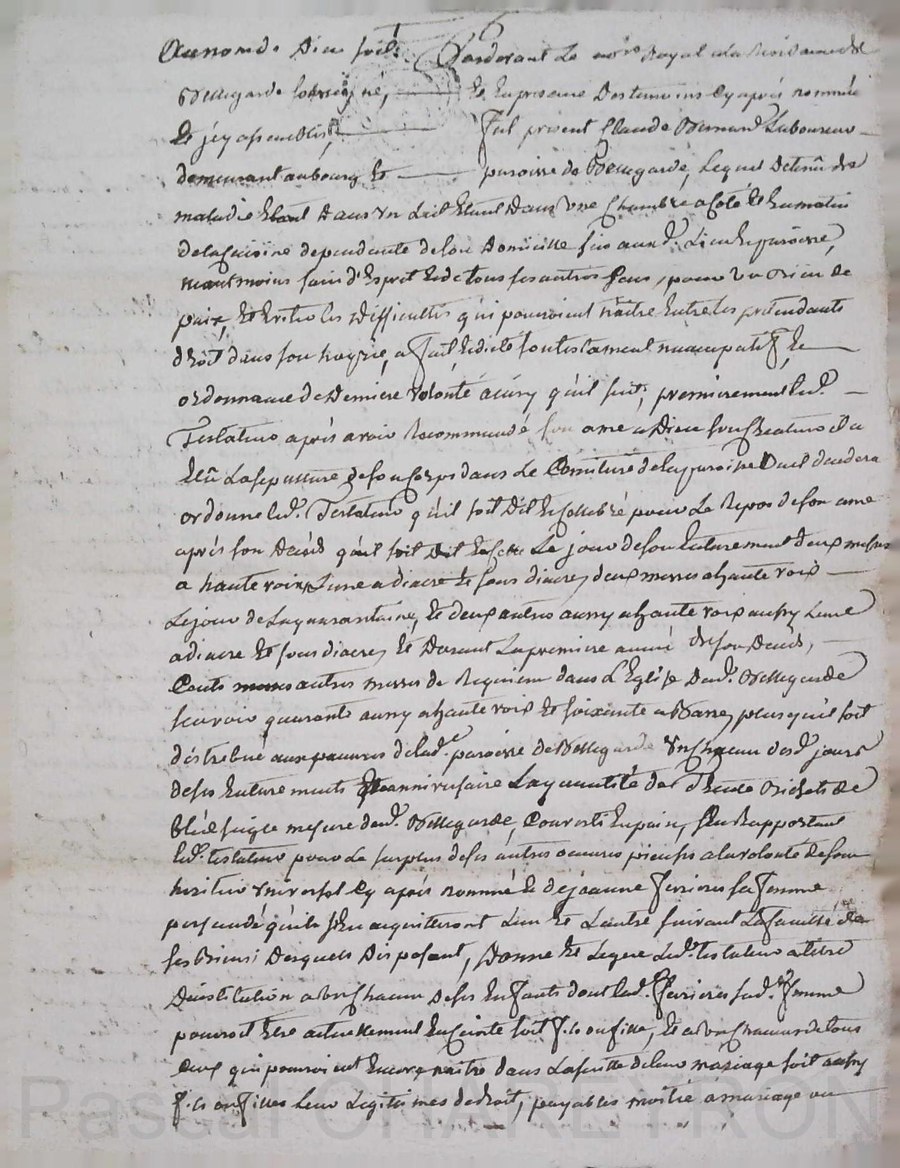 Au nom de Dieu soit Pardevant Le nore Royal a la Residence de
Bellegarde soussigné, Et En presence Des temoins Cy aprés nommés
Et icy assemblés, fut présent Claude Bernard Laboureur
demeurant au bourg Et paroisse de Bellegarde, Lequel detenû de
maladie Etant Dans un Lict Etant Dans une Chambre a coté Et Du matin
de la Cuisine dependante de son Domicille sis aud. Lieu Et paroisse,
neantmoins sain d'Esprit Et de tous ses autres sens, pour
paix, Et Eviter les Difficultés qui pourroient naitre Entre les prétendants
droit dans son hoyrie, a fait, Et dicté son testament nuncupatif, Et
ordonnance de Derniere volonté ainsy qu'il suit; premierement Led.
Testateur aprés avoir Recommandé son ame a Dieu son Createur il a
Elû La sepulture de son Corps dans Le Cimitiere de la paroisse Dont
ordonne led. Testateur qu'il soit Dit Et Cellebré pour Le Repos de son ame
aprés son Decés qu'il soit dit Le jour de son Enterrement deux messes
a haute voix, L'une a diacre Et sous diacre, deux messes a haute voix
Le jour de La quarantaine, Et deux autres aussy a haute voix aussy L'une
a diacre Et sous diacre, Et Durant La premiere année de son Decés,
Cents autres messes de Requiem dans L'Eglise Dud. Bellegarde
scavoir quarante aussy a haute voix Et soixante a Basse, plus qu'il soit
distribué aux pauvres de lad.e paroisse de Bellegarde Un Chacun desd. jours
de ses Enterrements Et anniversaire La quantité de trente Bichets de
bled seigle mesure dud. Bellegarde, Convertis En pain, s'En Rapportant
Led. testateur pour Le surplus de ses autres oeuvres pieuses a la volonté de son
heritier Universel Cy aprés nommé Et de jeanne ferrieres sa femme
persuadé qu'ils s'En acquitteront L'un Et L'autre suivant La faculté de
ses Biens; Desquels Disposant, Donne Et Legue Led. testateur a titre
D'institution a Un Chacun de ses Enfants dont lad. ferrieres sad. femme
pourroit Etre actuellement Enceinte soit fils ou fille, Et a Un Chacun de tous
Ceux qui pourroient Encore naitre dans La suitte de leur mariage soit aussy
fils ou filles Leur Legitimes de droit, payables moitié a mariage ou
Pascal CHAREYRON